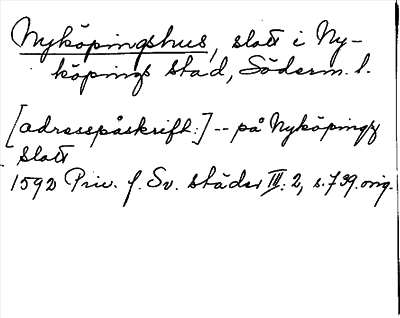 Nyköpingshus, slott i Ny-
köpings stad, Söderm. l.
[adresspåskrift:] -- på Nyköpingz
Slott
1592 Priv. f. Sv. städer III: 2, s. 739. orig.